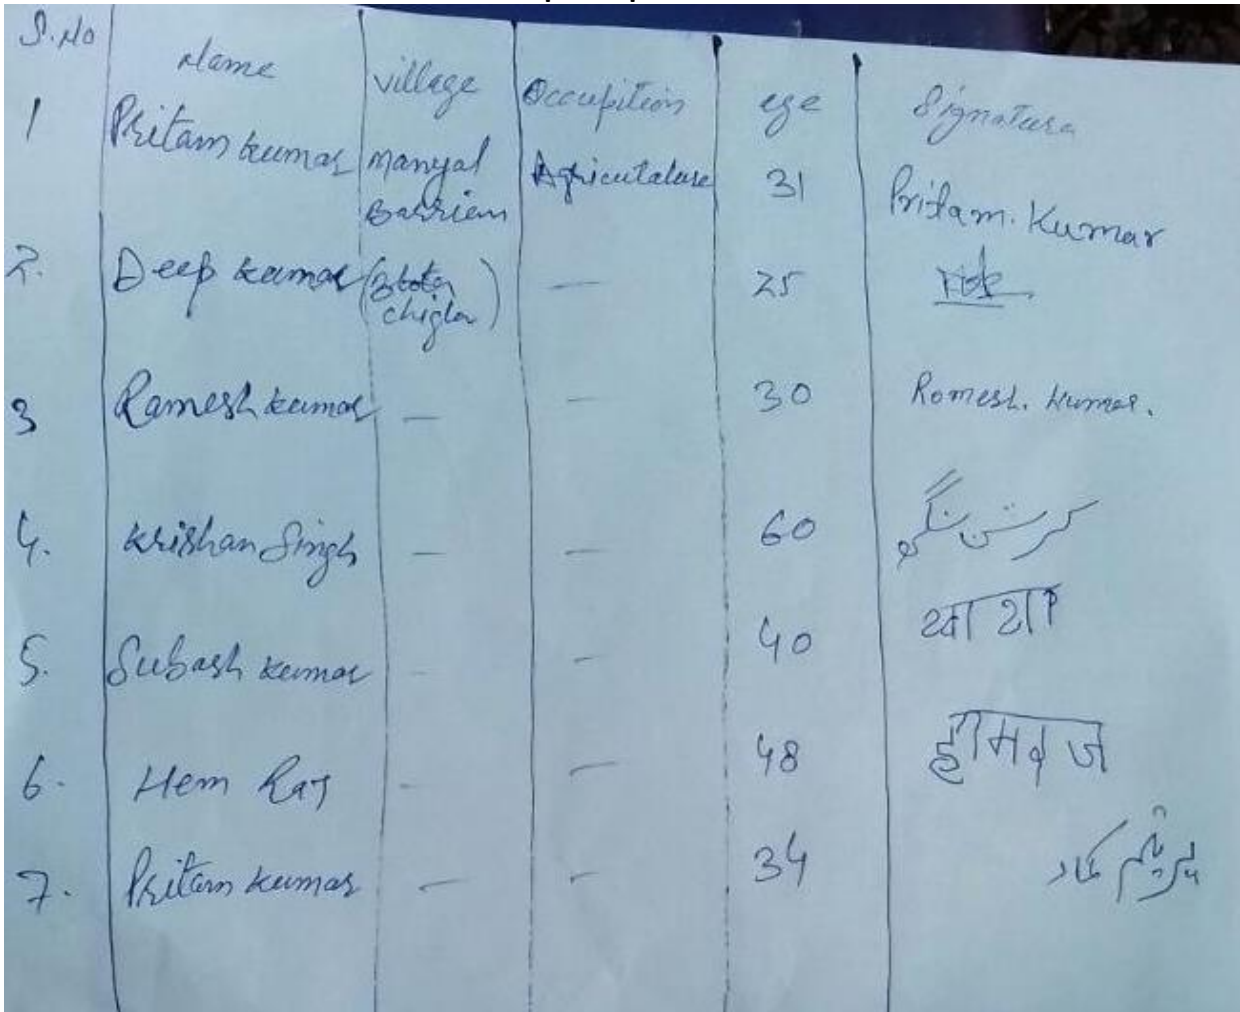 S.No Name village Occupition ege Signatura
1 Pritam kumar manyal Agricutalure 31 Pritam. Kumar
Barrian
2. Deep kumar ( chigla) — 25
3 Ramesh kumar — — 30 Romesh. Kumar.
4. Krishan Singh — — 60 کرشن سنگھ
5. Subash kumar — — 40
6. Hem Raj — — 48
7. Pritam kumar — — 34 پریتم کمار